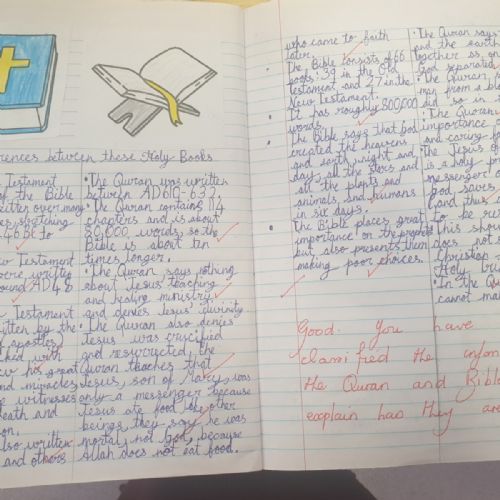 erences between these Holy Books
Testament
of the Bible
written over many
Testament
were written
ound AD 48
Testament
written by the
of apostles
ked with
his great
and miracles
witnesses
death and
also written
and others
• The Quran was written
between AD 610-632.
The Quran contains 114
chapters and is about
80,000 words, so the
Bible is about ten
times longer.
• The Quran says nothing
about Jesus' teaching
and healing ministry
and denies Jesus' divinity
• The Quran also denies
Jesus was crucified
and resurrected, the
Quran teaches that
Jesus, son of Mary, was
only a messenger because
Jesus ate food like other
beings, they say he was
mortal, not God, because
Allah does not eat food.
who came to faith
later.
• The Bible consists of 66
books: 39 in the Old
testament and 27 in the
New Testament.
• It has roughly 800,000
words.
• The Bible says that God
created the heavens
and earth, night and
day, all the stars and
all the plants and
animals, and humans
in six days.
• The Bible places great
importance on the
but also presents them
making poor choices.
• The Quran says
and the earth
together as on
God separated
• The Quran
man from a bl
did so in
• The Quran
importance
and caring
• The Jesus of
is a holy pro
messenger o
God saves
and thus
to be re
This shou
does not
Christian
Holy
• In the Q
cannot ma
Good. You have
classified the inform
the Quran and Bible
explain has they are